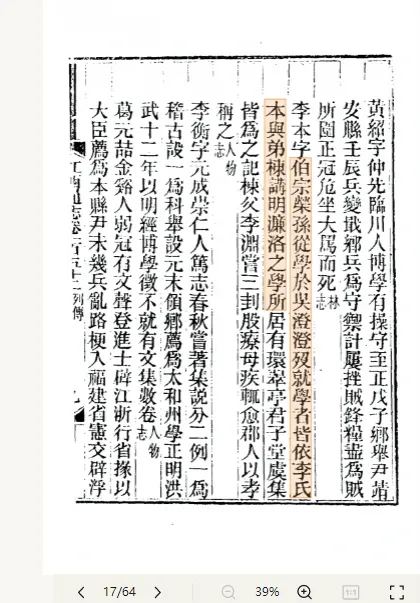 黃紹字仲先臨川人博學有操守至正戊子鄉舉尹靖
安縣壬辰兵變戢鄉兵為守禦計屢挫賊鋒糧盡為賊
所圍正冠危坐大罵而死林志
李本字伯宗榮孫從學於吳澄澄歿就學者皆依李氏
本與弟棟講明濂洛之學所居有環翠亭君子堂虞集
皆為之記棟父李淵嘗三刲股療母疾輒愈郡人以孝
稱之人物志
李衡字元成崇仁人篤志春秋嘗著集說分二例一為
稽古設一為科舉設元末領鄉薦為太和州學正明洪
武十二年以明經博學徵不就有文集數卷人物志
葛元喆金谿人弱冠有文聲登進士辟江浙行省掾以
大臣薦為本縣尹未幾兵亂路梗入福建省憲交辟浮
江西通志卷一百五十二列傳
九
17/64
39%
1:1